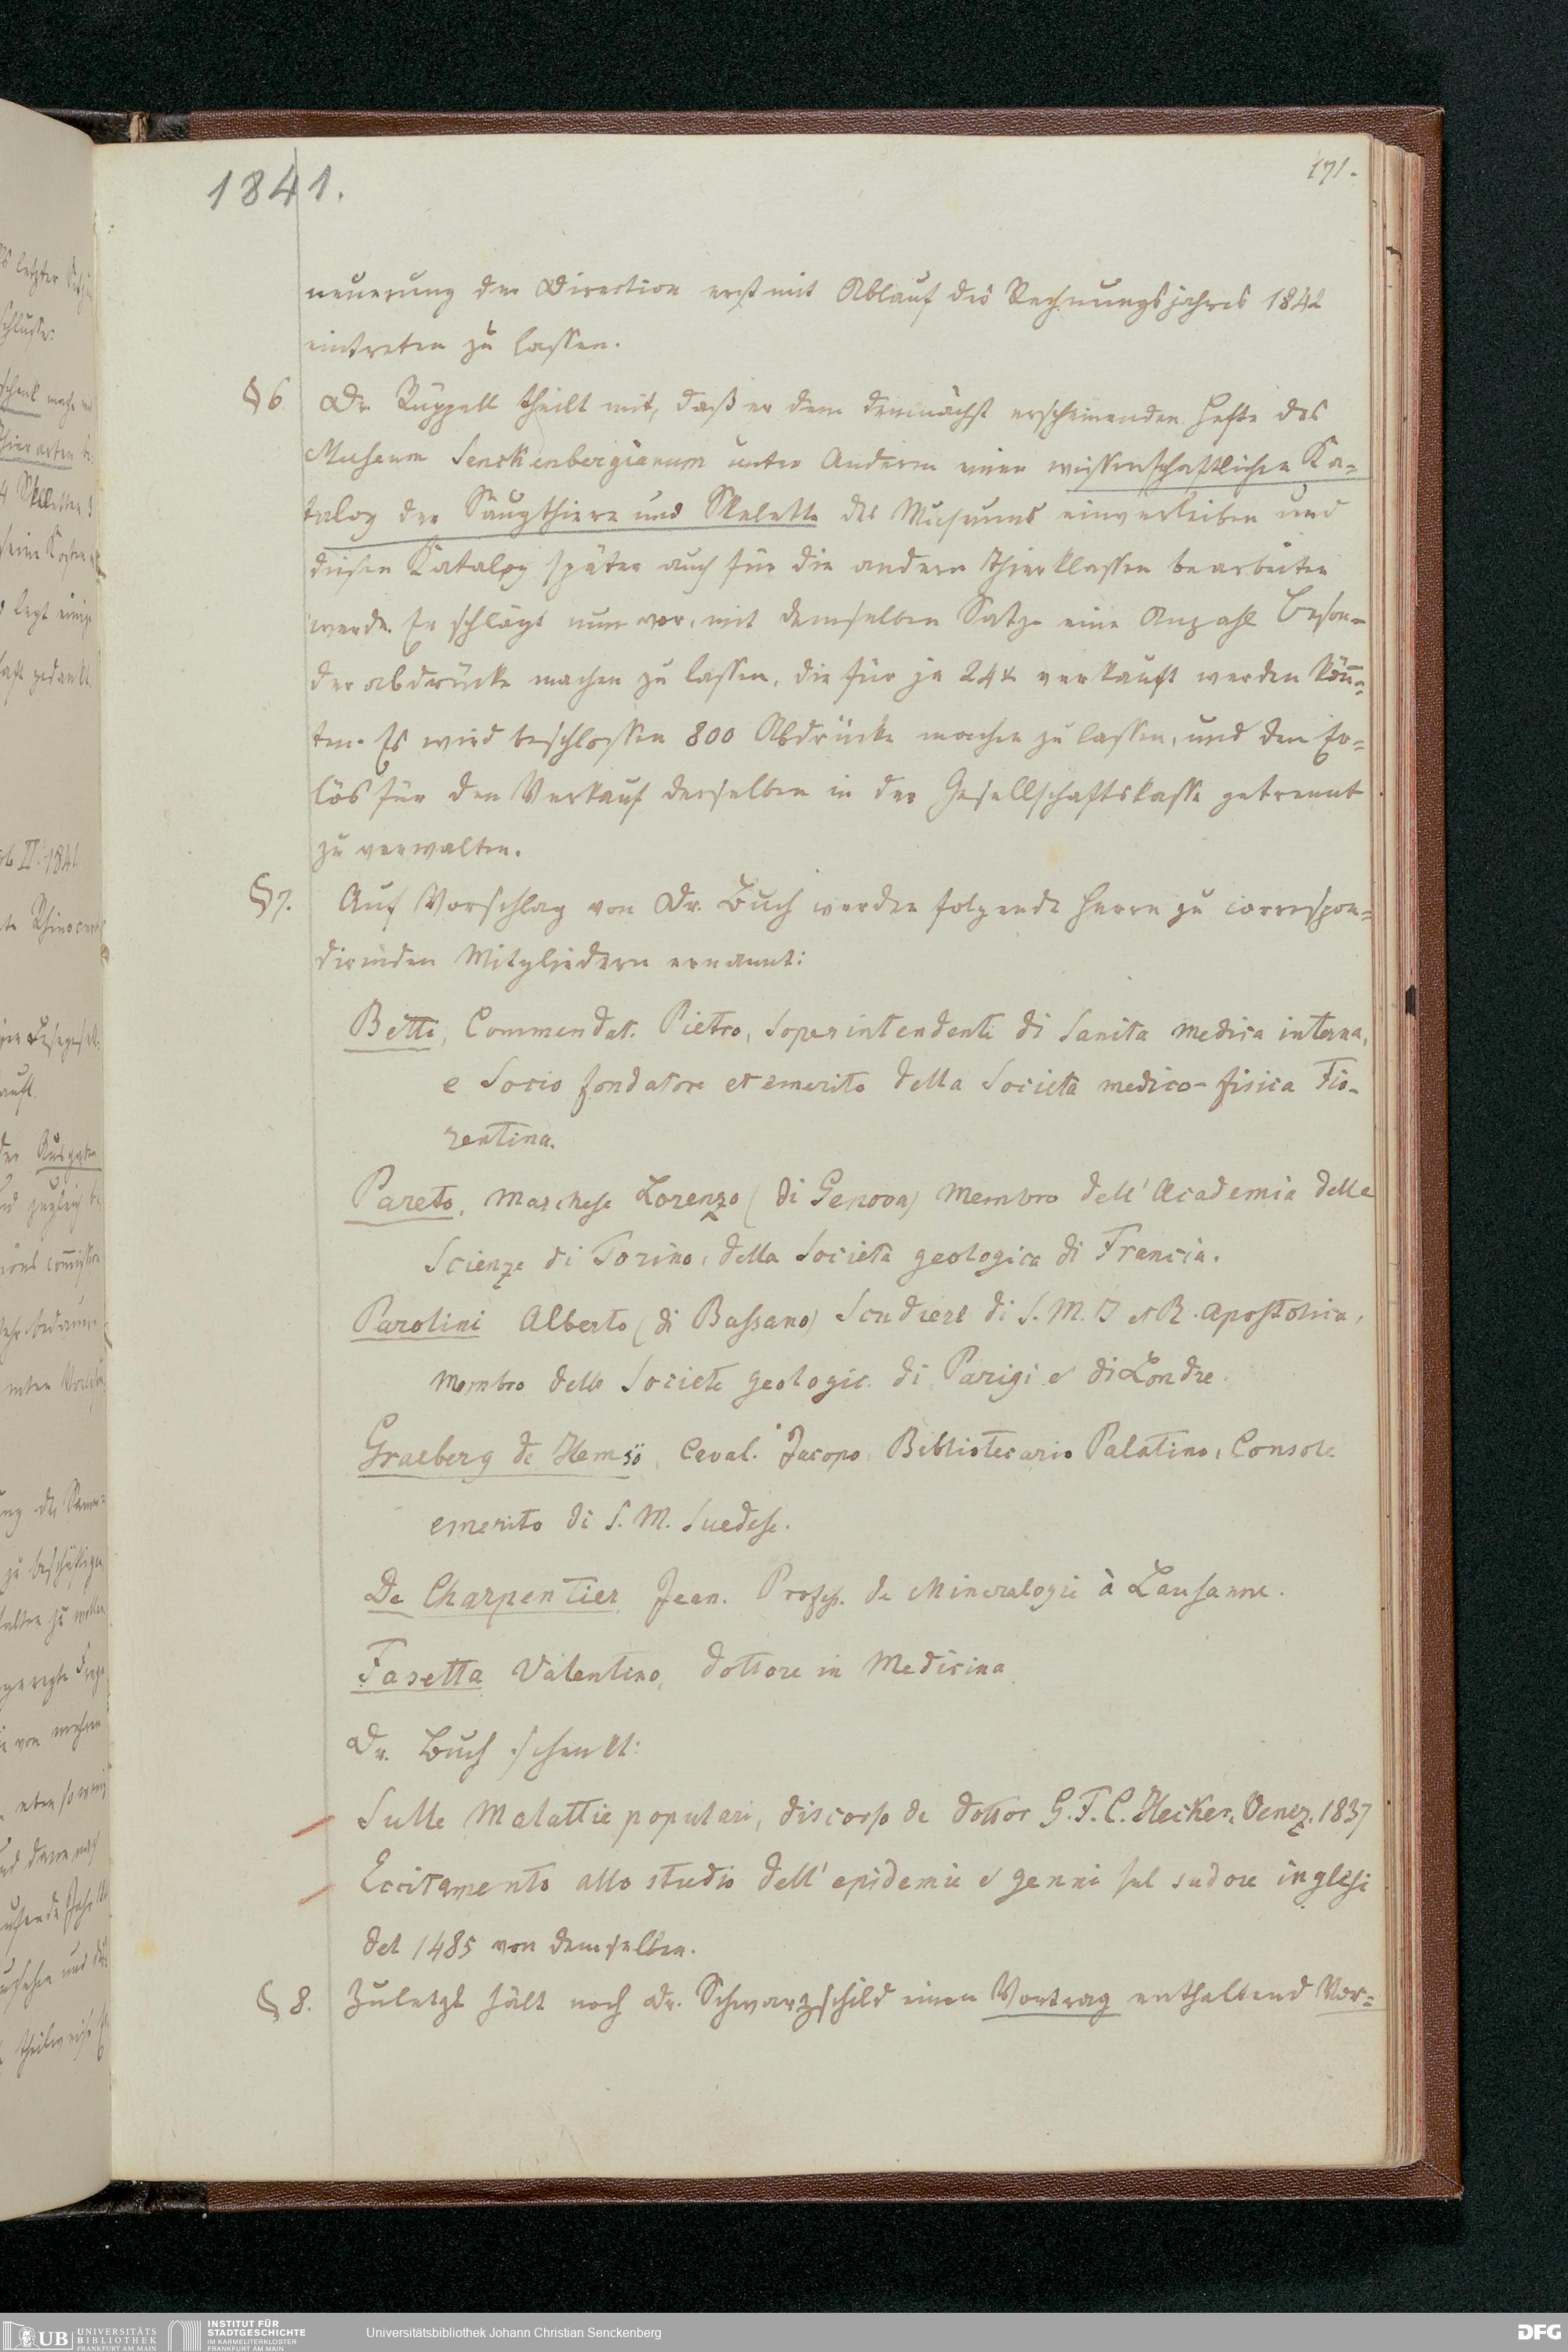 1841.
171.
neuerung der Direction erst mit Ablauf des Rechnungsjahres 1842
eintreten zu lassen.
§ 6. Dr. Rüppell theilt mit, daß er dem demnächst erscheinenden Hefte des
Museum Senckenbergianum unter Anderem einen wissenschaftlichen Ka=
talog der Säugthiere und Skelette des Museums einverleiben und
diesen Katalog später auch für die andern Thierklassen bearbeiten
werde. Er schlägt nun vor, mit demselben Satze eine Anzahl Beson=
derabdrücke machen zu lassen, die für je 24 x verkauft werden kön̄=
ten. Es wird beschlossen 800 Abdrücke machen zu lassen, und den Er=
lös für den Verkauf derselben in der Gesellschaftskasse getrennt
zu verwalten.
§ 7. Auf Vorschlag von Dr. Buch werden folgende Herrn zu correspon=
direnden Mitgliedern ernannt:
Betti, Commendat. Pietro, Soperintendente di Sanita medica interna,
e Socio fondatore et emerito della Societa medico-fisica Fio-
rentina.
Pareto, Marchese Lorenzo (di Genova) Membro dell' Academia delle
Scienze di Torino, della Societa geologica di Francia.
Parolini Alberto (di Bassano) Scudiere di S. M. I et R. Apostolica,
Membro delle Societe geologic. di Parigi e di Londre.
Graeberg de Hemsö, Caval. Jacopo, Bibliotecario Palatino, Console
emerito di S. M. Suedese.
De Charpentier Jean. Profess. de Mineralogie à Lausanne.
Fasetta Valentino, dottore in Medicina
Dr. Buch schenkt:
Sulle Malattie populari, discorso de dottor G. F. C. Hecker. Venez. 1837
Eccitamento allo studio dell' epidemie e genni sul sudore inglesi
del 1485 von demselben.
§ 8. Zuletzt hält noch Dr. Schwarzschild einen Vortrag enthaltend Vor=
UB UNIVERSITÄTS
BIBLIOTHEK
FRANKFURT AM MAIN
INSTITUT FÜR
STADTGESCHICHTE
IM KARMELITERKLOSTER
FRANKFURT AM MAIN
Universitätsbibliothek Johann Christian Senckenberg
DFG